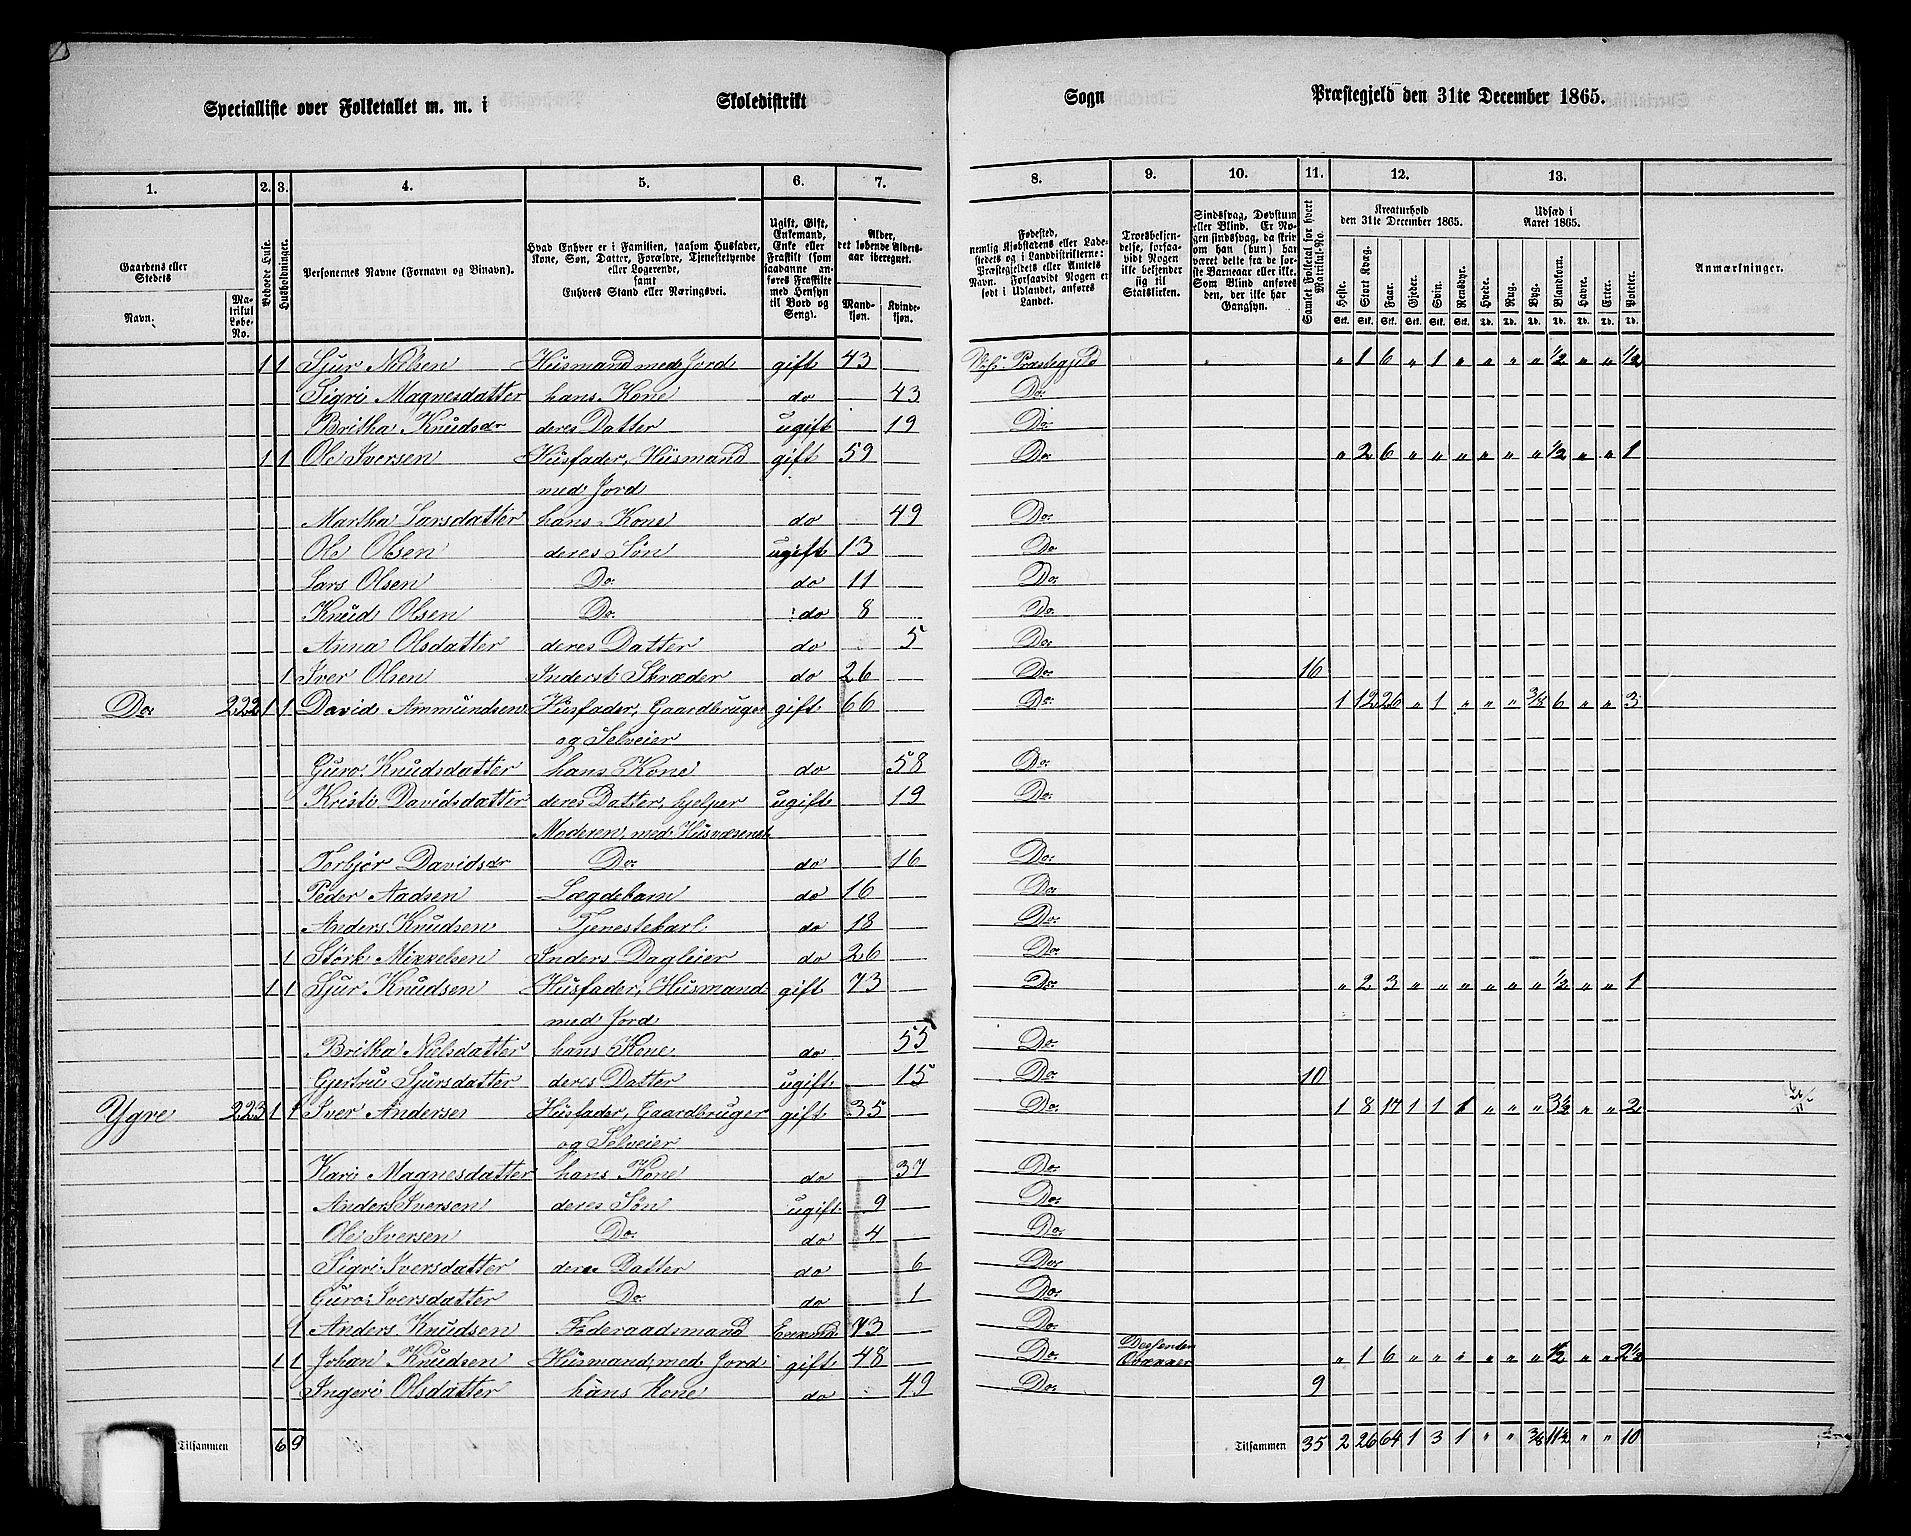 Specialliste over Folketallet m. m. i Skoledistrikt Sogn Præstegjeld den 31te December 1865.
1. 2. 3. 4. 5. 6. 7. 8. 9. 10. 11. 12. 13.
Gaardens eller Stedets Navn. Matrikul Løbe-No. Beboede Huse. Husholdninger. Personernes Navne (Fornavn og Binavn).
Hvad Enhver er i Familien, saasom Husfader, Kone, Søn, Datter, Forældre, Tjenestetyende eller Logerende, samt Enhvers Stand eller Næringsvei.
Ugift, Gift, Enkemand, Enke eller Fraskilt (som saadanne anføres Fraskilte med Hensyn til Bord og Seng).
Alder, det løbende Alders-aar iberegnet. Mandkjøn. Kvindekjøn.
Fødested, nemlig Kjøbstadens eller Ladestedets og i Landdistrikterne: Præstegjeldets eller Amtets Navn. Forsaavidt Nogen er født i Udlandet, anføres Landet.
Troesbekjendelse, forsaavidt Nogen ikke bekjender sig til Statskirken.
Sindssvag, Døvstum eller Blind. Er Nogen sindssvag, da skrives om han (hun) har været dette fra de første Barneaar eller ikke. Som Blind anføres den, der ikke har Gangsyn.
Samlet Folketal for hvert Matrikul-No.
Kreaturhold den 31te December 1865. Heste. Stort Kvæg. Faar. Gjeder. Svin. Rensdyr.
Udsæd i Aaret 1865. Hvede. Rug. Byg. Blandkorn. Havre. Erter. Poteter.
Anmærkninger.
Stk. Stk. Stk. Stk. Stk. Stk. Td. Td. Td. Td. Td. Td. Td.
1 1 Sjur Nielsen Husmand med Jord gift 43 Præstegjeld " 1 6 " 1 " " " " 1/2 " " 1/2
Sigri Magnesdatter hans Kone do 43 Do.
Britha Knudsdr deres Datter ugift 19 Do.
1 1 Ole Iversen Husfader, Husmand gift 59 Do. " 2 6 " " " " " " 1/2 " " 1
med Jord
Martha Larsdatter hans Kone do 49 Do.
Ole Olsen deres Søn ugift 13 Do.
Lars Olsen Do. do 11 Do.
Knud Olsen Do. do 8 Do.
Anna Olsdatter deres Datter do 5 Do.
1 Iver Olsen Inderst Skræder do 26 Do. 16
Do. 222 1 1 David Ammundsen Husfader, Gaardbruger gift 66 Do. 1 12 26 " 1 " " " 3/8 6 " " 3
og Selveier
Guro Knudsdatter hans Kone do 58 Do.
Kristi Davidsdatter deres Datter, hjelper ugift 19 Do.
Moderen, med Husvæsenet
Torbjør Davidsdr Do. do 16 Do.
Peder Aadsen Lægdebarn do 16 Do.
Anders Knudsen Tjenestekarl do 18 Do.
1 Størk Mikkelsen Inders Dagleier do 26 Do.
1 1 Sjur Knudsen Husfader, Husmand gift 73 Do. " 2 3 " " " " " " 1/2 " " 1
med Jord
Britha Nielsdatter hans Kone do 55 Do.
Gjertru Sjursdatter deres Datter ugift 15 Do. 10
Ygre 223 1 1 Iver Andersen Husfader, Gaardbruger gift 35 Do. 1 8 17 1 1 1 " " " 3 1/2 " " 2
og Selveier
Kari Magnesdatter hans Kone do 37 Do.
Anders Iversen deres Søn ugift 9 Do.
Ole Iversen Do. do 4 Do.
Sigri Iversdatter deres Datter do 6 Do.
Guro Iversdatter Do. do 1 Do.
1 Anders Knudsen Føderaadsmand 73 Do.
1 1 Johan Knudsen Husmand, med Jord gift 48 Do. " 1 6 " " " " " " " " 2 1/2
Ingeri Olsdatter hans Kone do 49 Do. 9
Tilsammen 6 9 Tilsammen 35 2 26 64 1 3 1 " " 3/8 11 1/2 " " 10